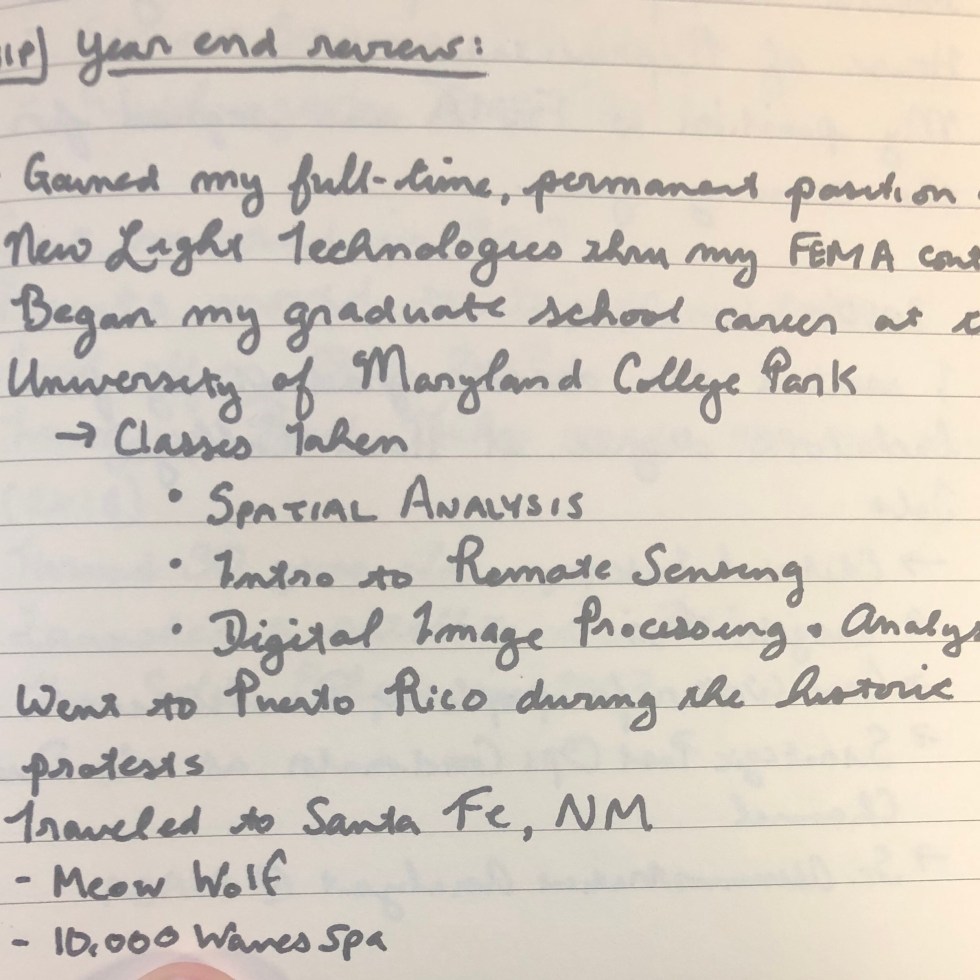 Year end review:
Gained my full-time, permanent position
New Light Technologies thru my FEMA
Began my graduate school career at
University of Maryland College Park
→ Classes Taken
• SPATIAL ANALYSIS
• Intro to Remote Sensing
• Digital Image Processing + Analys
Went to Puerto Rico during the historic
protests
Traveled to Santa Fe, NM
- Meow Wolf
- 10,000 Waves Spa